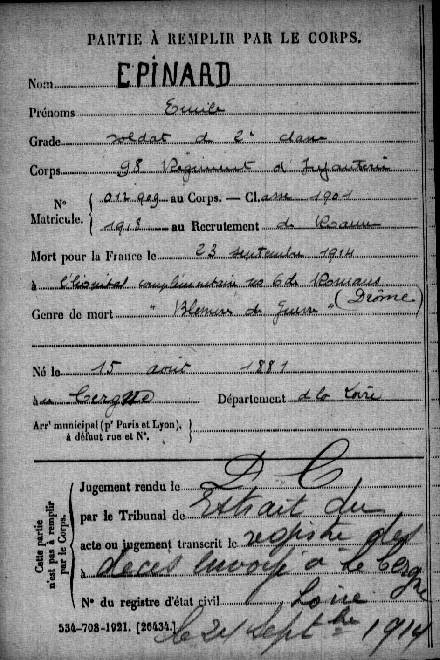 PARTIE À REMPLIR PAR LE CORPS.
Nom EPINARD
Prénoms Emile
Grade soldat de 2e classe
Corps 98 Régiment d'Infanterie
N° Matricule. { 012909 au Corps. — Classe 1901
1918 au Recrutement de Roanne
Mort pour la France le 23 septembre 1914
à l'hôpital complémentaire no 6 de Romans
(Drôme)
Genre de mort "Blessures de Guerre"
Né le 15 août 1881
à Cergne Département de la Loire
Arr¹ municipal (pʳ Paris et Lyon), à défaut rue et N°. }
Cette partie n'est pas à remplir par le Corps.
D C
Jugement rendu le
par le Tribunal de Extrait du
acte ou jugement transcrit le registre des
à décès envoyé à Le Cergne
N° du registre d'état civil Loire
534-708-1921. [26434.] le 24 Septbre 1914